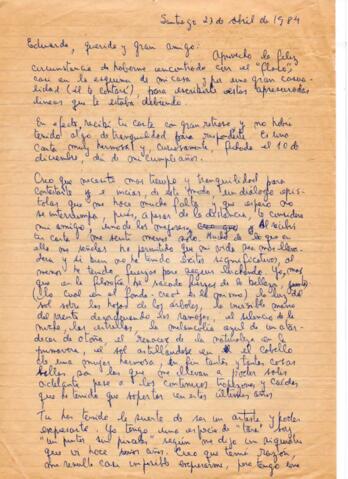 Santiago 27 de Abril de 1984
Eduardo, querido y gran amigo:
Aprovecho la feliz
circunstancia de haberme encontrado con el "Cholo",
casi en la esquina de mi casa, y por una gran casua-
lidad (él te contará), para escribirte estas apresuradas
líneas que te estaba debiendo.
En efecto, recibí tu carta con gran retraso y no había
tenido algo de tranquilidad para responderte. Es una
carta muy hermosa y, curiosamente, fechada el 10 de
diciembre, día de mi cumpleaños.
Creo que necesito más tiempo y tranquilidad para
contestarte y iniciar, de este modo, un diálogo epis-
tolar que me hace mucha falta, y que espero no
se interrumpa, pues, a pesar de la distancia, te considero
mi amigo, uno de los mejores. Al recibir
tu carta me sentí menos solo. Mucho de lo que en
ella me señalas ha permitido que mi vida sea más lleva-
dera y si bien no he tenido éxitos significativos, al
menos he tenido fuerzas para seguir luchando. Yo, más
que en la filosofía, he sacado fuerzas de la belleza,
(lo cual en el fondo creo es lo mismo) la luz del
sol sobre las hojas de los árboles, la invisible mano
del viento despeinando los ramajes, el silencio de la
noche, las estrellas, la melancolía azul de un atar-
decer de otoño, el renacer de la naturaleza en la
primavera, el sol astillándose en el cabello
de una mujer hermosa, en fin, tantas y tantas cosas
bellas, son las que me llevan a poder salir
adelante pese a los continuos tropiezos y caídas
que he tenido que soportar en estos últimos años
Tú has tenido la suerte de ser un artista y poder
expresarte. Yo tengo una especie de "tara" soy
"un pintor sin pincel" según me dijo un siquiatra
que vi hace años. Creo que tenía razón,
me resulta casi imposible expresarme, pero tengo una